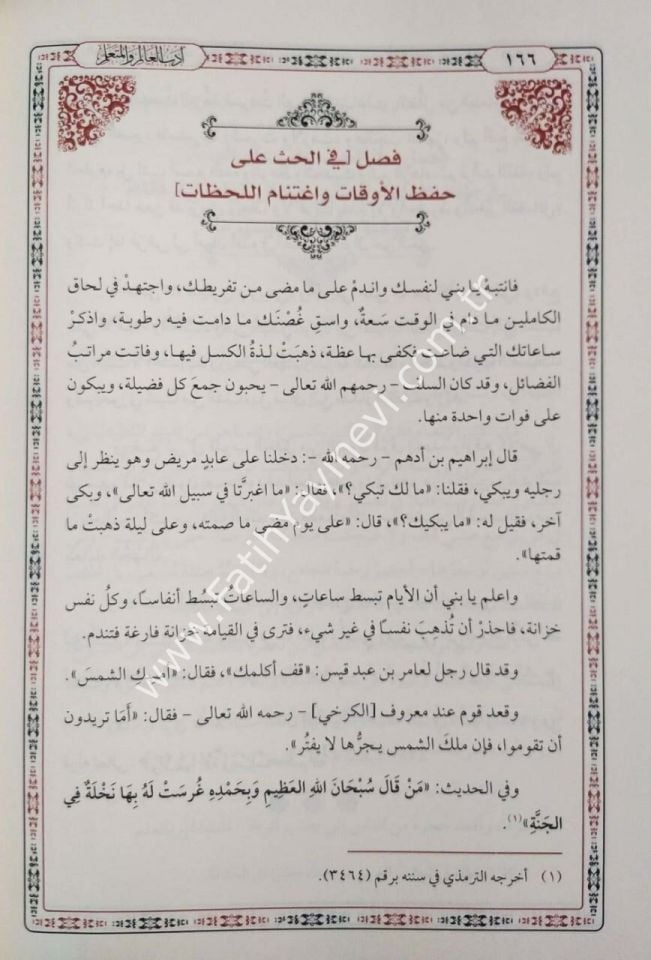 أدب العالم والمتعلم
١٦٦
فصل [في الحث على
حفظ الأوقات واغتنام اللحظات]
فانتبهْ يا بني لنفسك واندمْ على ما مضى من تفريطك، واجتهدْ في لحاق
الكاملين ما دام في الوقت سَعةٌ، واسقِ غُصْنَك ما دامت فيه رطوبة، واذكرْ
ساعاتك التي ضاعت فكفى بها عظة، ذهبَتْ لذةُ الكسل فيها، وفاتت مراتبُ
الفضائل، وقد كان السلف – رحمهم الله تعالى – يحبون جمعَ كل فضيلة، ويبكون
على فوات واحدة منها.
قال إبراهيم بن أدهم – رحمه الله –: دخلنا على عابدٍ مريض وهو ينظر إلى
رجليه ويبكي، فقلنا: «ما لك تبكي؟»، فقال: «ما اغبرَّتا في سبيل الله تعالى»، وبكى
آخر، فقيل له: «ما يبكيك؟»، قال: «على يوم مضى ما صمته، وعلى ليلة ذهبتْ ما
قمتها».
واعلم يا بني أن الأيام تبسط ساعاتٍ، والساعاتُ تبسُط أنفاسًا، وكلُ نفس
خزانة، فاحذرْ أن تُذهِبَ نفسًا في غير شيء، فترى في القيامة خزانة فارغة فتندم.
وقد قال رجل لعامر بن عبد قيس: «قف أكلمك»، فقال: «أمسك الشمسَ».
وقعد قوم عند معروف [الكرخي] – رحمه الله تعالى – فقال: «أَمَا تريدون
أن تقوموا، فإن ملكَ الشمس يجرُّها لا يفتُر».
وفي الحديث: «مَنْ قَالَ سُبْحَانَ اللهِ العَظِيمِ وَبِحَمْدِهِ غُرِسَتْ لَهُ بِهَا نَخْلَةٌ فِي
الجَنَّةِ»(١).
(١) أخرجه الترمذي في سننه برقم (٣٤٦٤).
www.FatihYayinevi.com.tr